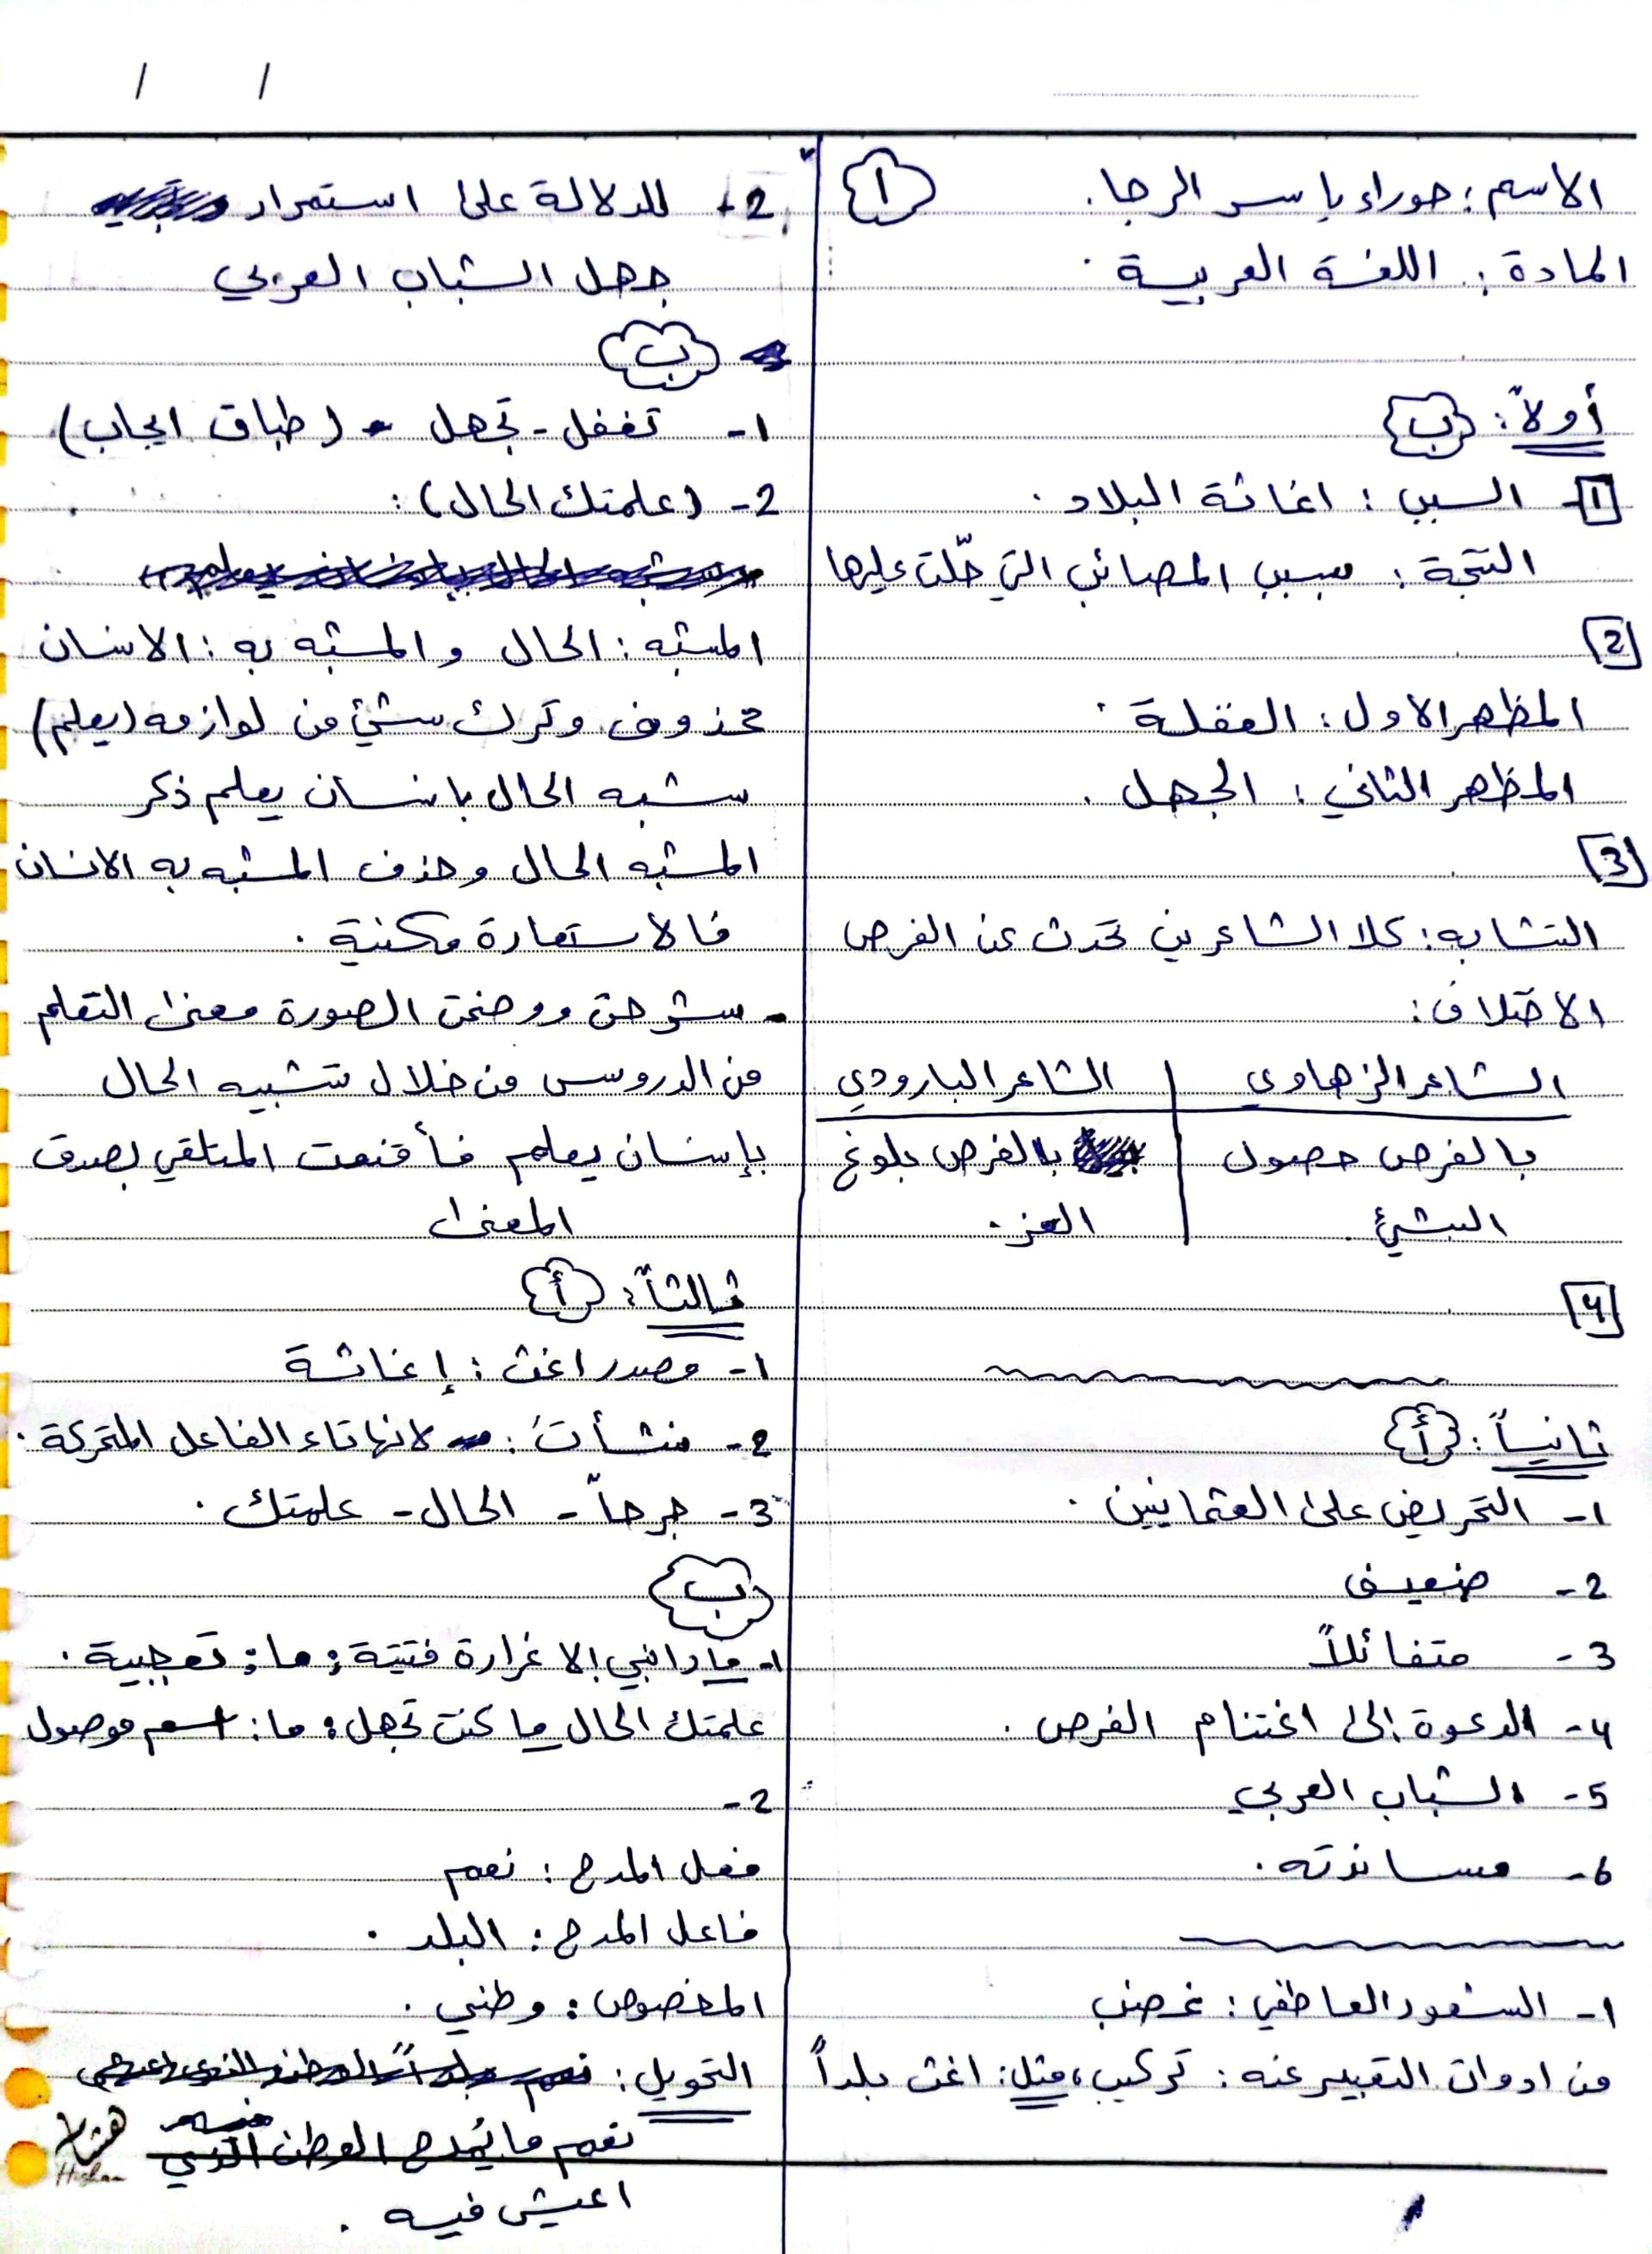 الاسم : حوراء ياسر الرجا .
1
المادة : اللغة العربية .
أولاً : ب
1- السبب : اغاثة البلاد .
النتجة : بسبب المصائب التي حلّت عليها
2
المظهر الاول : الغفلة .
المظهر الثاني : الجهل .
3
التشابه : كلا الشاعرين تحدث عن الفرص
الاختلاف :
الشاعر الزهاوي | الشاعر البارودي
بالفرص حصول | بالفرص بلوغ
الشيئ . | العز .
4
ثانياً : أ
1- التحريض على العثمانيين .
2- ضعيف
3- متفائلاً
4- الدعوة إلى اغتنام الفرص .
5- الشباب العربي
6- مساندته .
1- الشعور العاطفي : غضب
من ادوات التعبير عنه : تركيب ، مثل : اغث بلداً
2- للدلالة على استمرار
جهل الشباب العربي
ب
1- تغفل - تجهل - (طباق ايجاب)
2- (علمتك الحال) :
المشبه : الحال والمشبه به : الانسان
محذوف وترك شيئ من لوازمه (يعلم)
شبه الحال بانسان يعلم ذكر
المشبه الحال وحذف المشبه به الانسان
فالاستعارة مكنية .
- شرحت ووضحت الصورة معنى التعلم
من الدروس من خلال تشبيه الحال
بإنسان يعلم فأقنعت المتلقي بصدق
المعنى
ثالثاً : أ
1- مصدر اغث : إغاثة
2- منشأت : لانها تاء الفاعل المتحركة .
3- جرحاً - الحال - علمتك .
ب
1- ما رابني إلا غرارة فتية : ما : تعجبية .
علمتك الحال ما كنت تجهل : ما : اسم موصول
2-
فعل المدح : نعم
فاعل المدح : البلد .
المخصوص : وطني .
التحويل :
نعم ما يُمدح الوطن
اعيش فيه .
هشام
Hisham